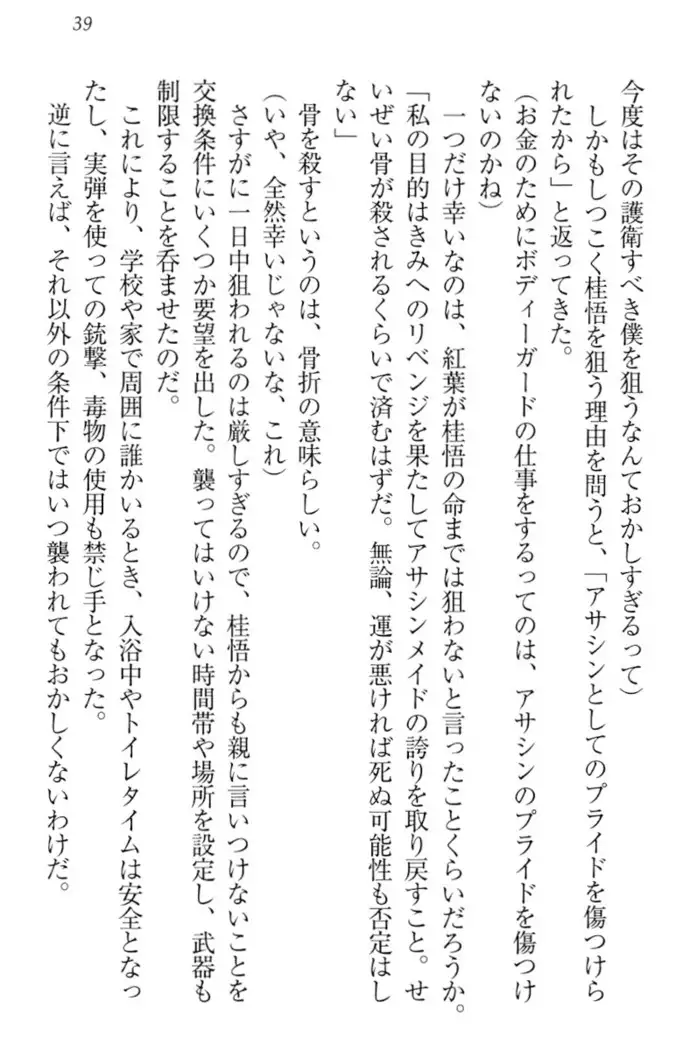 39
今度はその護衛すべき僕を狙うなんておかしすぎるって)
しかもしつこく桂悟を狙う理由を問うと、「アサシンとしてのプライドを傷つけら
れたから」と返ってきた。
(お金のためにボディーガードの仕事をするってのは、アサシンのプライドを傷つけ
ないのかね)
一つだけ幸いなのは、紅葉が桂悟の命までは狙わないと言ったことくらいだろうか。
「私の目的はきみへのリベンジを果たしてアサシンメイドの誇りを取り戻すこと。せ
いぜい骨が殺されるくらいで済むはずだ。無論、運が悪ければ死ぬ可能性も否定はし
ない」
骨を殺すというのは、骨折の意味らしい。
(いや、全然幸いじゃないな、これ)
さすがに一日中狙われるのは厳しすぎるので、桂悟からも親に言いつけないことを
交換条件にいくつか要望を出した。襲ってはいけない時間帯や場所を設定し、武器も
制限することを呑ませたのだ。
これにより、学校や家で周囲に誰かいるとき、入浴中やトイレタイムは安全となっ
たし、実弾を使っての銃撃、毒物の使用も禁じ手となった。
逆に言えば、それ以外の条件下ではいつ襲われてもおかしくないわけだ。